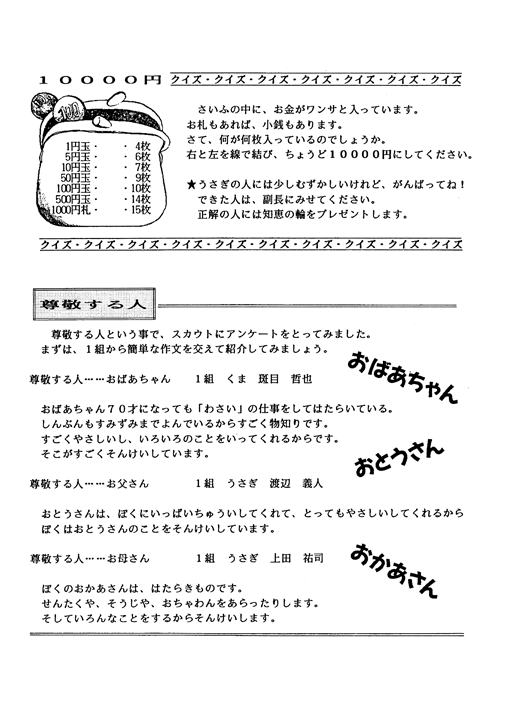 １００００円 クイズ・クイズ・クイズ・クイズ・クイズ・クイズ・クイズ
さいふの中に、お金がワンサと入っています。
お札もあれば、小銭もあります。
さて、何が何枚入っているのでしょうか。
右と左を線で結び、ちょうど１００００円にしてください。
1円玉・ ・ 4枚
5円玉・ ・ 6枚
10円玉・ ・ 7枚
50円玉・ ・ 9枚
100円玉・ ・10枚
500円玉・ ・14枚
1000円札・ ・15枚
★うさぎの人には少しむずかしいけれど、がんばってね！
できた人は、副長にみせてください。
正解の人には知恵の輪をプレゼントします。
クイズ・クイズ・クイズ・クイズ・クイズ・クイズ・クイズ・クイズ・クイズ・クイズ
尊敬する人
尊敬する人という事で、スカウトにアンケートをとってみました。
まずは、１組から簡単な作文を交えて紹介してみましょう。
おばあちゃん
尊敬する人……おばあちゃん １組 くま 斑目 哲也
おばあちゃん７０才になっても「わさい」の仕事をしてはたらいている。
しんぶんもすみずみまでよんでいるからすごく物知りです。
すごくやさしいし、いろいろのことをいってくれるからです。
そこがすごくそんけいしています。
おとうさん
尊敬する人……お父さん １組 うさぎ 渡辺 義人
おとうさんは、ぼくにいっぱいちゅういしてくれて、とってもやさしいしてくれるから
ぼくはおとうさんのことをそんけいしています。
おかあさん
尊敬する人……お母さん １組 うさぎ 上田 祐司
ぼくのおかあさんは、はたらきものです。
せんたくや、そうじや、おちゃわんをあらったりします。
そしていろんなことをするからそんけいします。